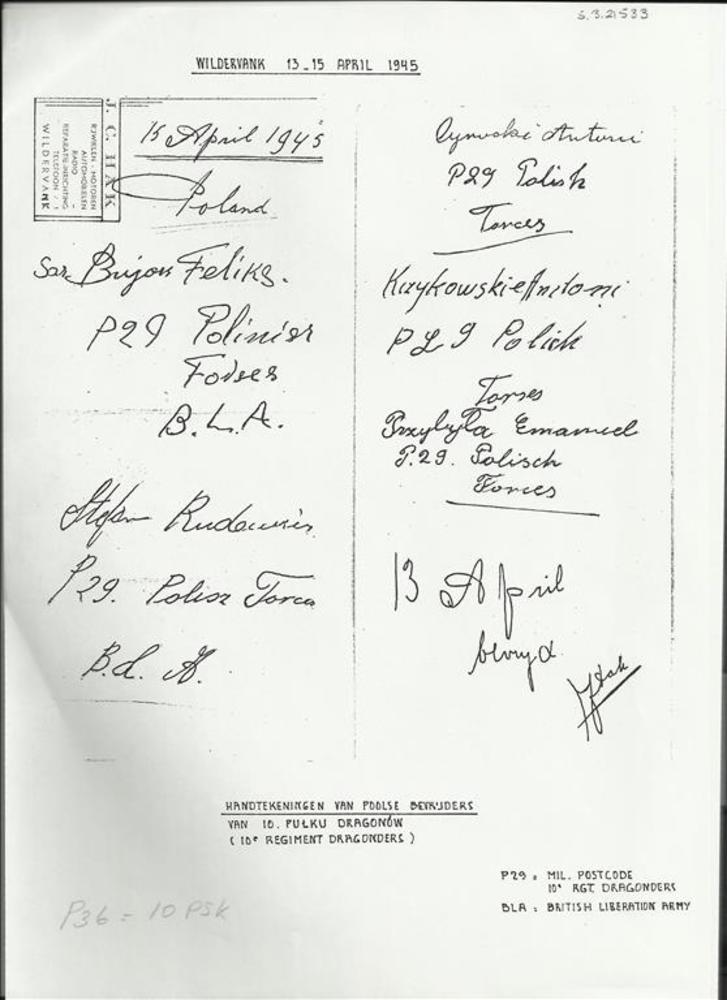 5.3.21533
WILDERVANK 13-15 APRIL 1945
J. C. HAK
RIJWIELEN - MOTOREN
AUTOMOBIELEN
RADIO
REPARATIE-INRICHTING
TELEFOON
WILDERVANK
15 April 1945
Poland
Feliks.
P29 Polinisr
Forses
B.L.A.
Stefan
P29. Polisz Forces
B.L.A.
Antoni
P29 Polish
Forces
Krzykowskie Antoni
PL9 Polich
Forses
Przybyła Emanuel
P.29. Polisch
Forces
13 April
bevryd
JHak
HANDTEKENINGEN VAN POOLSE BEVRIJDERS
VAN 10. PUŁKU DRAGONÓW
(10e REGIMENT DRAGONDERS)
P29 = MIL. POSTCODE
10e RGT. DRAGONDERS
BLA = BRITISH LIBERATION ARMY
P36 = 10 PSK